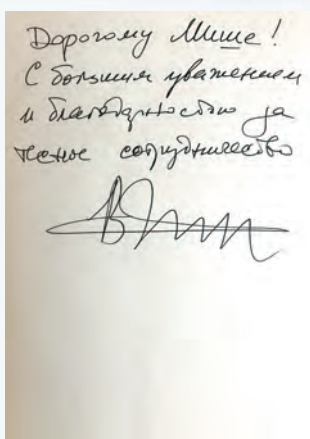 Дорогому Мише!
С большим уважением
и благодарностью за
тесное сотрудничество